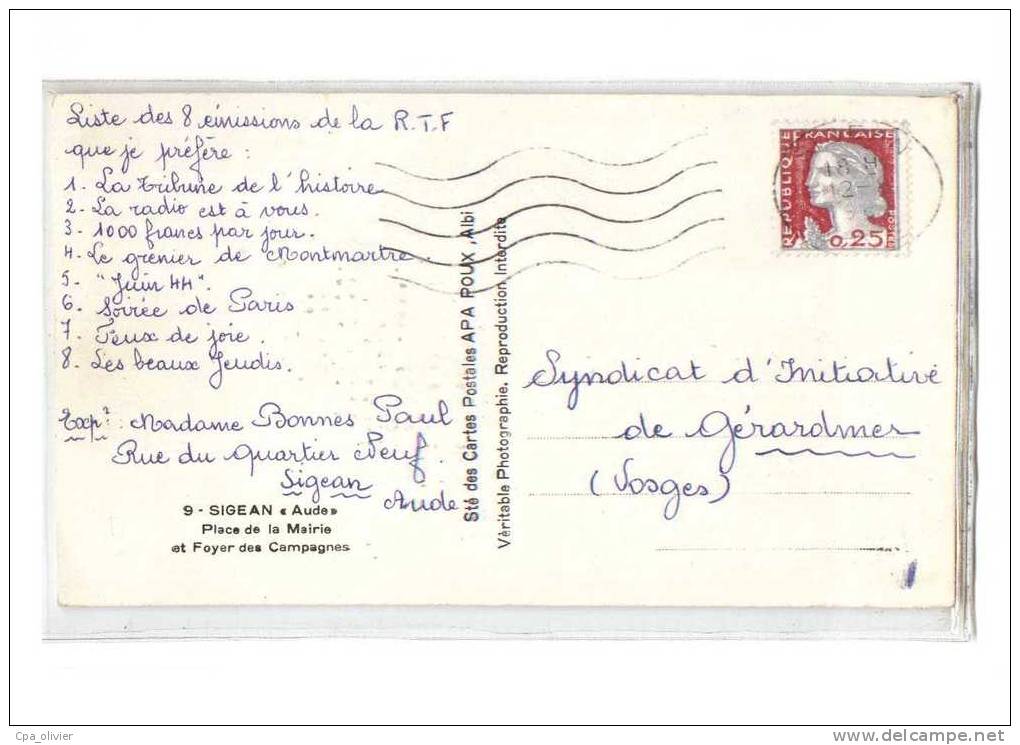 Liste des 8 émissions de la R.T.F
que je préfère :
1. La tribune de l'histoire
2. La radio est à vous.
3. 1000 francs par jour.
4. Le grenier de Montmartre.
5. "Juin 44".
6. Soirée de Paris
7. Feux de joie.
8. Les beaux Jeudis.
Exp : Madame Bonnes Paul
Rue du Quartier Neuf.
Sigean
Aude
9 - SIGEAN « Aude »
Place de la Mairie
et Foyer des Campagnes
Sté des Cartes Postales APA POUX, Albi
Véritable Photographie. Reproduction Interdite
REPUBLIQUE FRANÇAISE
0,25
POSTES
Syndicat d'Initiative
de Gérardmer
(Vosges)
Cpa_olivier
www.delcampe.net